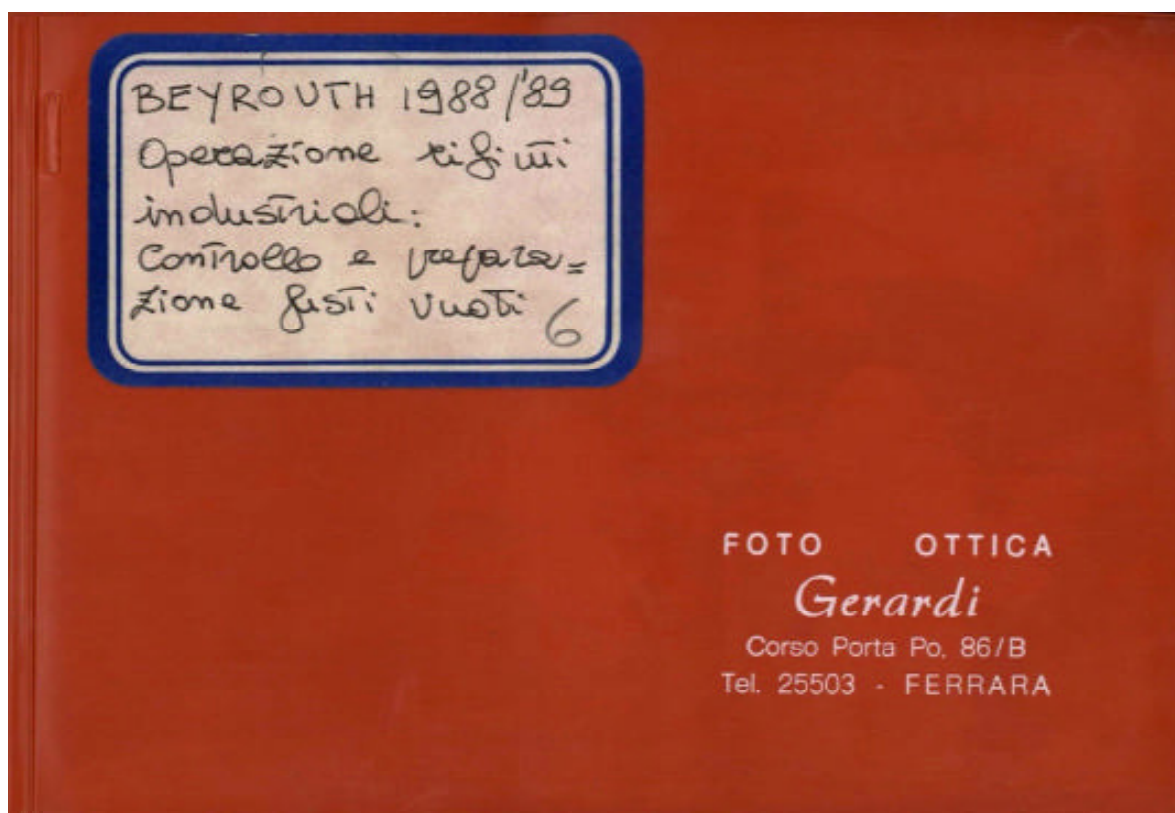 BEYROUTH 1988/'89
Operazione rifiuti
industriali:
Controllo e prepara=
zione fusti vuoti 6
FOTO OTTICA
Gerardi
Corso Porta Po, 86/B
Tel. 25503 - FERRARA